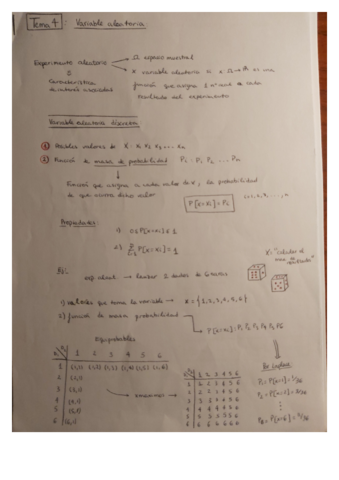 Tema 4: Variable aleatoria
Experimento aleatorio
Ω espacio muestral
X variable aleatoria
es una
función que asigna
a cada
resultado del experimento
Característica
de interés asociada
Variable aleatoria discreta
1) Posibles valores de X: x₁ x₂ x₃ ... xₙ
2) Función de masa de probabilidad P₁, P₂, P₃ ... Pₙ
Función que asigna a cada valor de X, la probabilidad
de que ocurra dicho valor
P[X=xᵢ] = Pᵢ
i=1,2,3,...,n
Propiedades
1) 0≤P[X=xᵢ]≤1
2) Σ P[X=xᵢ]=1
Ej:
lanzar 2 dados de 6 caras
1) valores que toma la variable → X = {1,2,3,4,5,6}
2) función de masa probabilidad
P[X=xᵢ]: P₁ P₂ P₃ P₄ P₅ P₆
Equiprobables
1 2 3 4 5 6
1 (1,1) (1,2) (1,3) (1,4) (1,5) (1,6)
2 (2,1)
3 (3,1)
4 (4,1)
5 (5,1)
6 (6,1)
1 2 3 4 5 6
1 1 2 3 4 5 6
2 2 2 3 4 5 6
3 3 3 3 4 5 6
4 4 4 4 4 5 6
5 5 5 5 5 5 6
6 6 6 6 6 6 6
Por Laplace
P₁ = P[X=1] = 1/36
P₂ = P[X=2] = 3/36